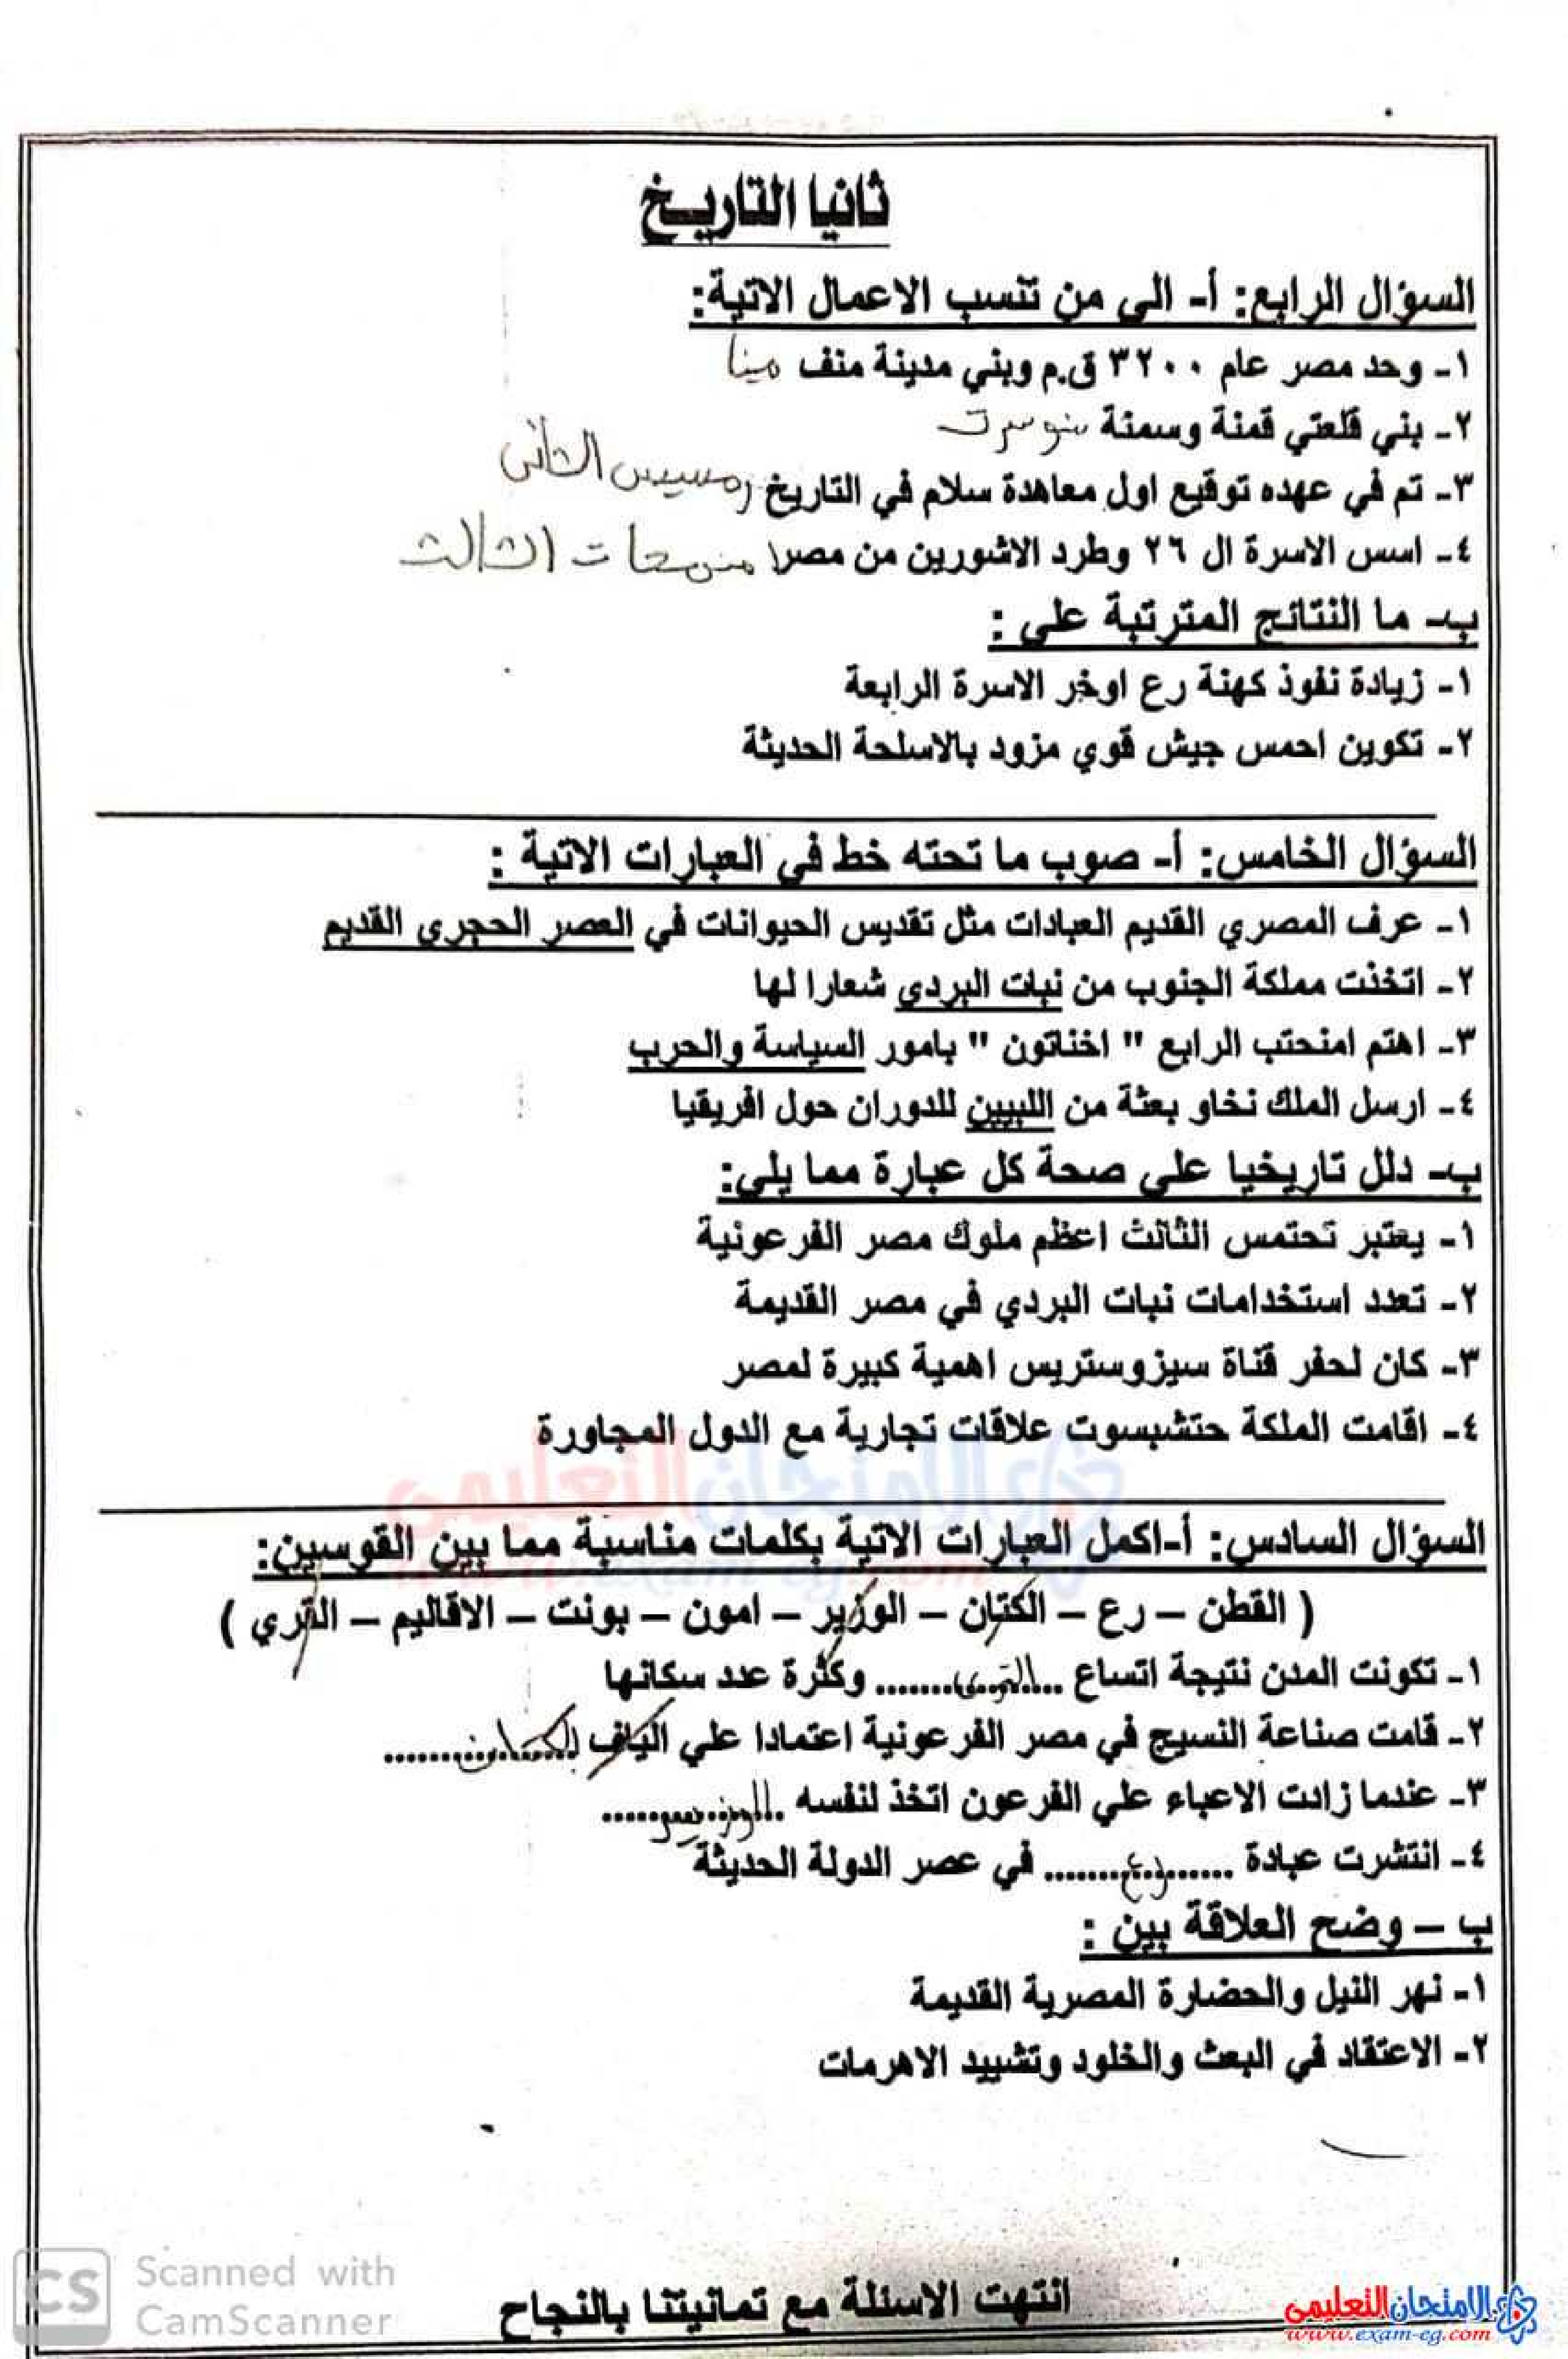 ثانيا التاريخ
السؤال الرابع: أ- الي من تنسب الاعمال الاتية:
١- وحد مصر عام ٣٢٠٠ ق.م وبني مدينة منف مينا
٢- بني قلعتي قمنة وسمنة سنوسرت
٣- تم في عهده توقيع اول معاهدة سلام في التاريخ رمسيس الثانى
٤- اسس الاسرة ال ٢٦ وطرد الاشورين من مصر الثالث
ب- ما النتائج المترتبة علي :
١- زيادة نفوذ كهنة رع اوخر الاسرة الرابعة
٢- تكوين احمس جيش قوي مزود بالاسلحة الحديثة
السؤال الخامس: أ- صوب ما تحته خط في العبارات الاتية :
١- عرف المصري القديم العبادات مثل تقديس الحيوانات في العصر الحجري القديم
٢- اتخذت مملكة الجنوب من نبات البردي شعارا لها
٣- اهتم امنحتب الرابع " اخناتون " بامور السياسة والحرب
٤- ارسل الملك نخاو بعثة من الليبين للدوران حول افريقيا
ب- دلل تاريخيا علي صحة كل عبارة مما يلي:
١- يعتبر تحتمس الثالث اعظم ملوك مصر الفرعونية
٢- تعدد استخدامات نبات البردي في مصر القديمة
٣- كان لحفر قناة سيزوستريس اهمية كبيرة لمصر
٤- اقامت الملكة حتشبسوت علاقات تجارية مع الدول المجاورة
الامتحان التعليمى
www.exam-eg.com
السؤال السادس: أ-اكمل العبارات الاتية بكلمات مناسبة مما بين القوسين:
( القطن – رع – الكتان – الوزير – امون – بونت – الاقاليم – القري )
١- تكونت المدن نتيجة اتساع ...القرى... وكثرة عدد سكانها
٢- قامت صناعة النسيج في مصر الفرعونية اعتمادا علي الياف الكتان
٣- عندما زادت الاعباء علي الفرعون اتخذ لنفسه ...الوزير...
٤- انتشرت عبادة ...رع... في عصر الدولة الحديثة
ب – وضح العلاقة بين :
١- نهر النيل والحضارة المصرية القديمة
٢- الاعتقاد في البعث والخلود وتشييد الاهرمات
انتهت الاسئلة مع تمانيتنا بالنجاح
CS Scanned with
CamScanner
الامتحان التعليمى
www.exam-eg.com